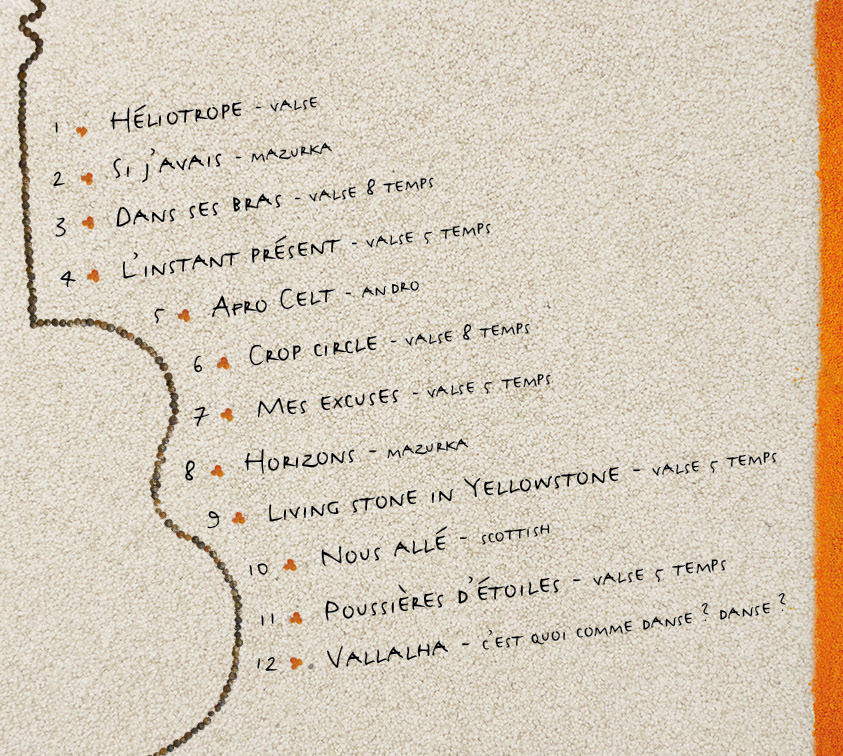 1 HÉLIOTROPE - VALSE
2 SI J'AVAIS - MAZURKA
3 DANS SES BRAS - VALSE 8 TEMPS
4 L'INSTANT PRÉSENT - VALSE 5 TEMPS
5 AFRO CELT - ANDRO
6 CROP CIRCLE - VALSE 8 TEMPS
7 MES EXCUSES - VALSE 5 TEMPS
8 HORIZONS - MAZURKA
9 LIVING STONE IN YELLOWSTONE - VALSE 5 TEMPS
10 NOUS ALLÉ - SCOTTISH
11 POUSSIÈRES D'ÉTOILES - VALSE 5 TEMPS
12 VALLALHA - C'EST QUOI COMME DANSE ? DANSE ?